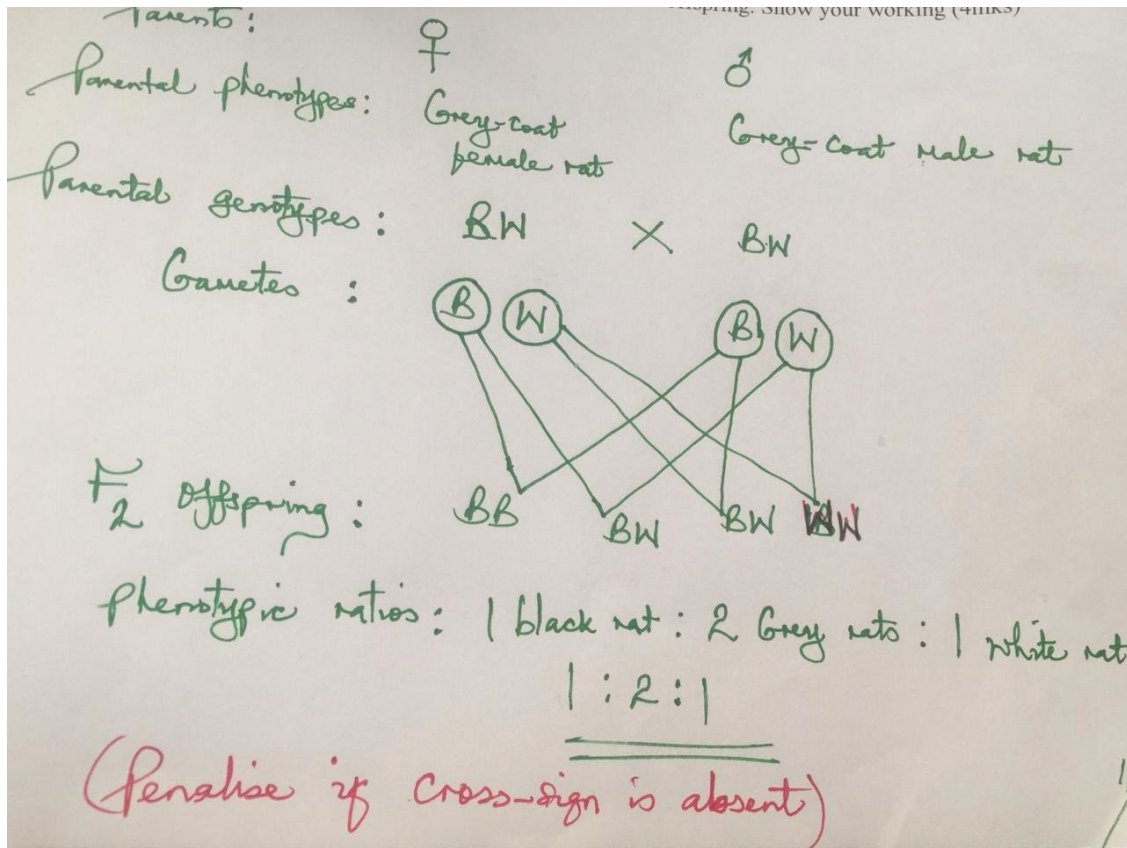 offspring. Show your working (4mks)
Parents : ♀ ♂
Parental phenotypes: Grey-coat female rat Grey-coat male rat
Parental genotypes : BW X BW
Gametes : B W B W
F2 offspring : BB BW BW WW
Phenotypic ratios : 1 black rat : 2 Grey rats : 1 white rat
1 : 2 : 1
(Penalise if cross-sign is absent)